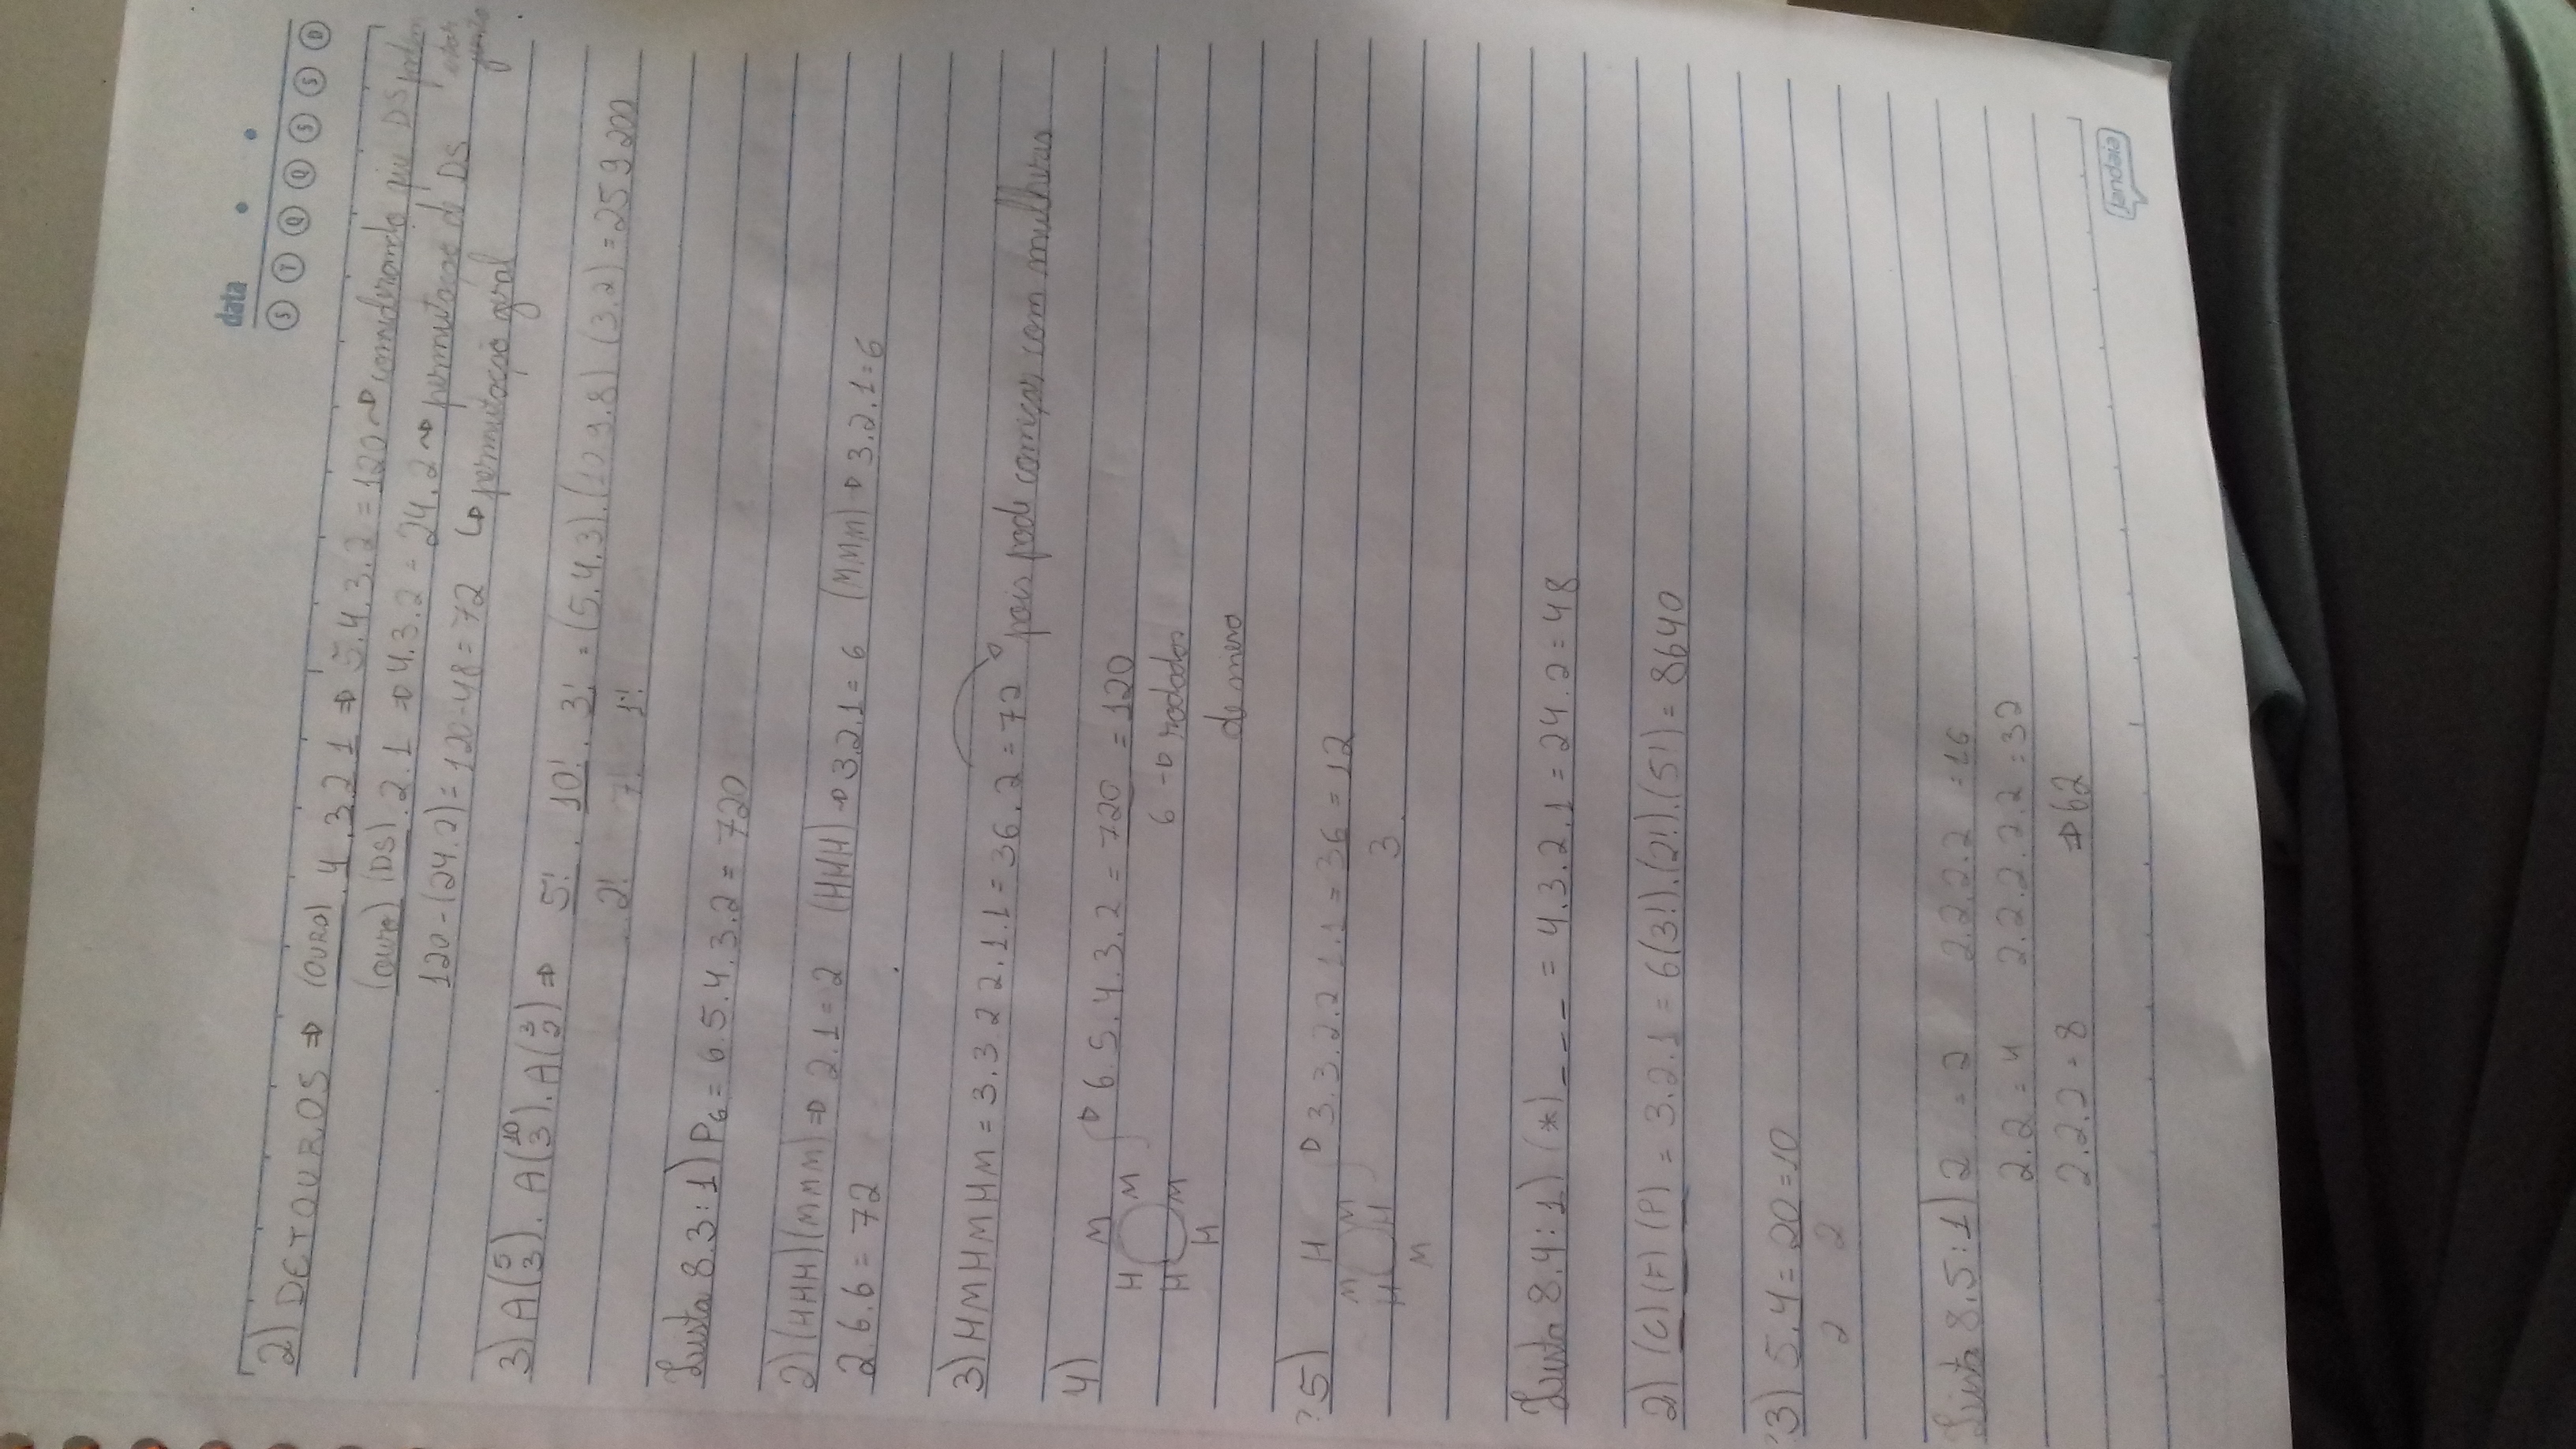 data
S T Q Q S S D
2) DETOUROS ⇒ (OURO). 4 . 3 2 1 ⇒ 5.4.3.2 = 120 ~> considerando que DS podem estar junto
(ouro) (DS). 2.1 ⇒ 4.3.2 = 24.2 ~> permutação de DS
120-(24.2)= 120-48 = 72 ↳ permutação geral
3) A(5 3). A(10 3). A(3 2) ⇒ 5!/2! . 10!/7! . 3!/1! = (5.4.3).(10.9.8) (3.2) = 259200
Lista 8.3: 1) P6 = 6.5.4.3.2 = 720
2) (HHH)(MMM) ⇒ 2.1 = 2 (HHH) → 3.2.1 = 6 (MMM) → 3.2.1 = 6
2.6.6 = 72
3) HMHMHM = 3.3 2 2.1.1 = 36.2 = 72 pois pode começar com mulheres
4) 6.5.4.3.2 = 720/6 = 120
M
H M
H M
H
6 → rodadas
de mesa
?5) 3.3.2.2 1.1 = 36/3 = 12
H
M M
H H
M
Lista 8.4: 1) (*) _ _ _ = 4.3.2.1 = 24.2 = 48
2) (C) (F) (P) = 3.2.1 = 6(3!).(2!).(5!) = 8640
?3) 5.4/2 = 20/2 = 10
Lista 8.5: 1) 2 = 2 2.2.2.2 = 16
2.2 = 4 2.2.2.2.2 = 32
2.2.2 = 8 ⇒ 62
jandaia